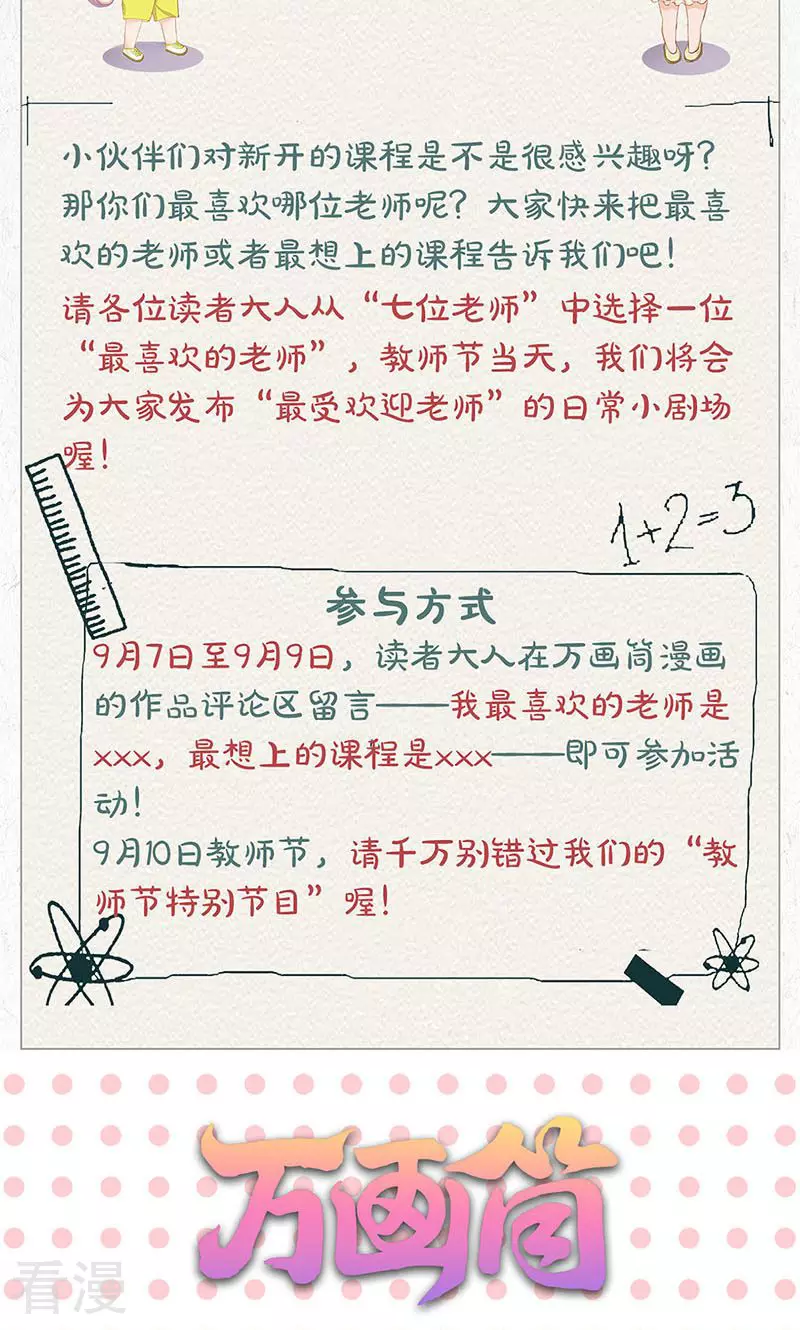 小伙伴们对新开的课程是不是很感兴趣呀？
那你们最喜欢哪位老师呢？大家快来把最喜
欢的老师或者最想上的课程告诉我们吧！
请各位读者大人从“七位老师”中选择一位
“最喜欢的老师”，教师节当天，我们将会
为大家发布“最受欢迎老师”的日常小剧场
喔！
1+2=3
参与方式
9月7日至9月9日，读者大人在万画筒漫画
的作品评论区留言——我最喜欢的老师是
xxx，最想上的课程是xxx——即可参加活
动！
9月10日教师节，请千万别错过我们的“教
师节特别节目”喔！
万画筒
看漫